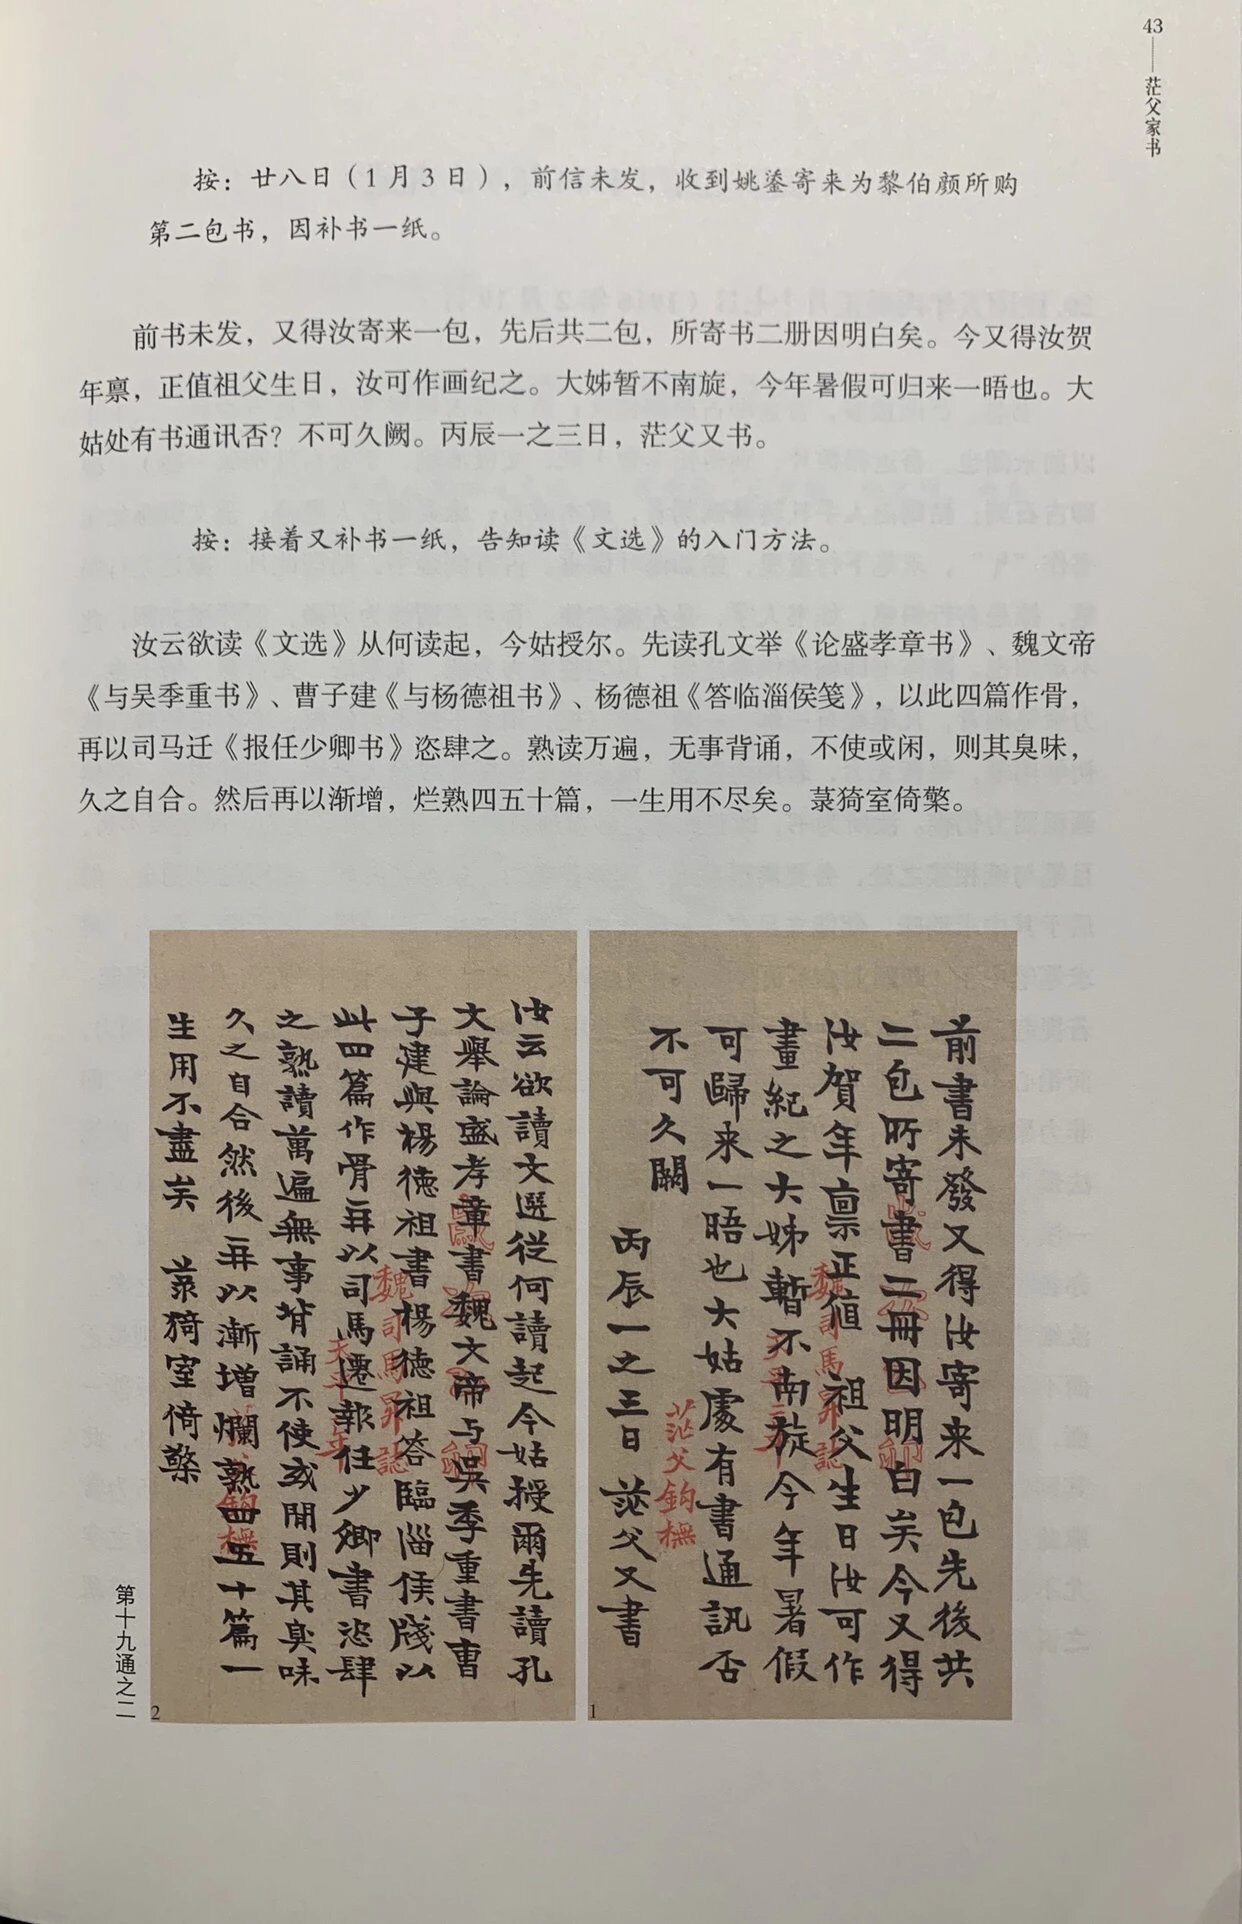 43——茫父家书
按：廿八日（1月3日），前信未发，收到姚鋆寄来为黎伯颜所购
第二包书，因补书一纸。
前书未发，又得汝寄来一包，先后共二包，所寄书二册因明白矣。今又得汝贺
年禀，正值祖父生日，汝可作画纪之。大姊暂不南旋，今年暑假可归来一晤也。大
姑处有书通讯否？不可久阙。丙辰一之三日，茫父又书。
按：接着又补书一纸，告知读《文选》的入门方法。
汝云欲读《文选》从何读起，今姑授尔。先读孔文举《论盛孝章书》、魏文帝
《与吴季重书》、曹子建《与杨德祖书》、杨德祖《答临淄侯笺》，以此四篇作骨，
再以司马迁《报任少卿书》恣肆之。熟读万遍，无事背诵，不使或闲，则其臭味，
久之自合。然后再以渐增，烂熟四五十篇，一生用不尽矣。菉猗室倚檠。
前書未發又得汝寄来一包先後共
二包所寄書二冊因明白矣今又得
汝賀年禀正值祖父生日汝可作
畫紀之大姊暫不南旋今年暑假
可歸来一晤也大姑處有書通訊否
不可久闕
丙辰一之三日 茫父又書
魏司馬昇誌
茫父鈎橅
1
汝云欲讀文選從何讀起今姑授爾先讀孔
文舉論盛孝章書魏文帝与吳季重書曹
子建與楊德祖書楊德祖答臨淄侯牋以
此四篇作骨再以司馬遷報任少卿書恣肆
之熟讀萬遍無事背誦不使或閒則其臭味
久之自合然後再以漸增爛熟四五十篇一
生用不盡矣 菉猗室倚檠
魏司馬昇誌
鈎橅
2
第十九通之二